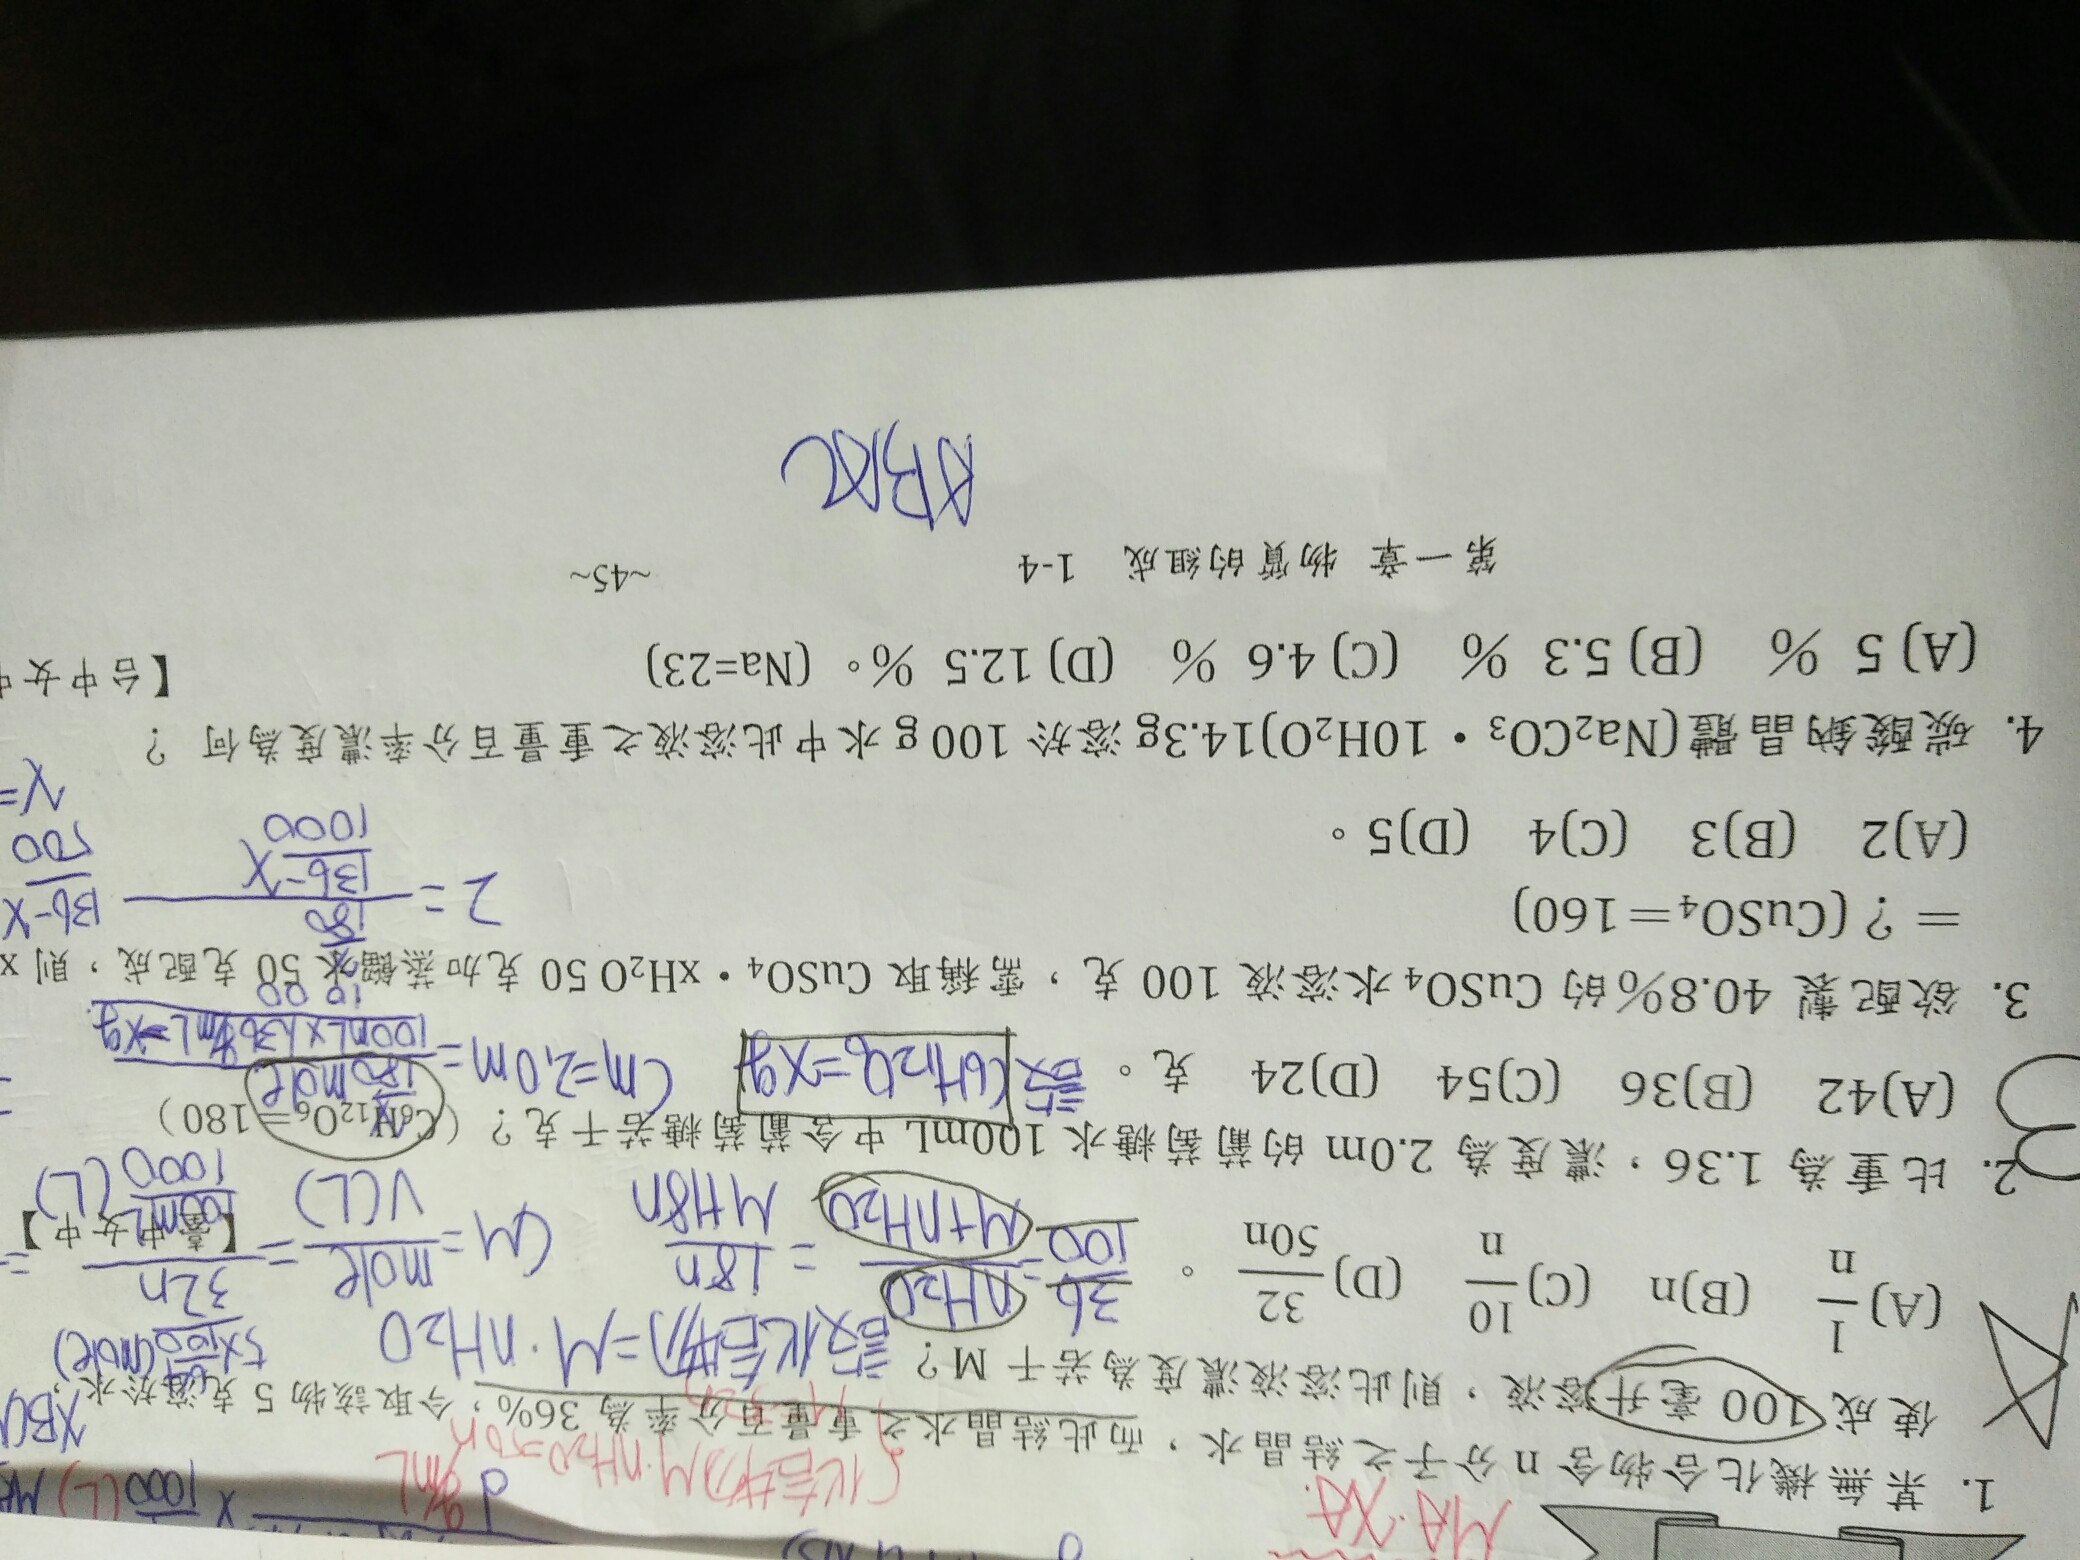 MA.XA.
d g/mL
1000 (L)
1. 某無機化合物含 n 分子之結晶水,而此結晶水之重量百分率為 36%,今取該物 5 克溶於水,
使成 100 毫升溶液,則此溶液濃度為若干 M?
設化合物=M·nH2O
(A) 1/n (B)n (C) 10/n (D) 32/50n 。
36/100 = nH2O/M+nH2O = 18n/M+18n
CM = mole/V(L) =
【臺中女中】
2. 比重為 1.36,濃度為 2.0m 的葡萄糖水 100mL 中含葡萄糖若干克? (C6H12O6=180)
(A)42 (B)36 (C)54 (D)24 克。
設C6H12O6=xg
Cm=2.0m=
3. 欲配製 40.8%的 CuSO4 水溶液 100 克,需稱取 CuSO4・xH2O 50 克加蒸餾水 50 克配成,則 x
=?(CuSO4=160)
(A)2 (B)3 (C)4 (D)5。
2= x/180 / 136-x/1000
4. 碳酸鈉晶體(Na2CO3・10H2O)14.3g 溶於 100 g 水中此溶液之重量百分率濃度為何?
(A) 5 % (B) 5.3 % (C) 4.6 % (D) 12.5 %。(Na=23)
【台中女中
第一章 物質的組成 1-4 ~45~